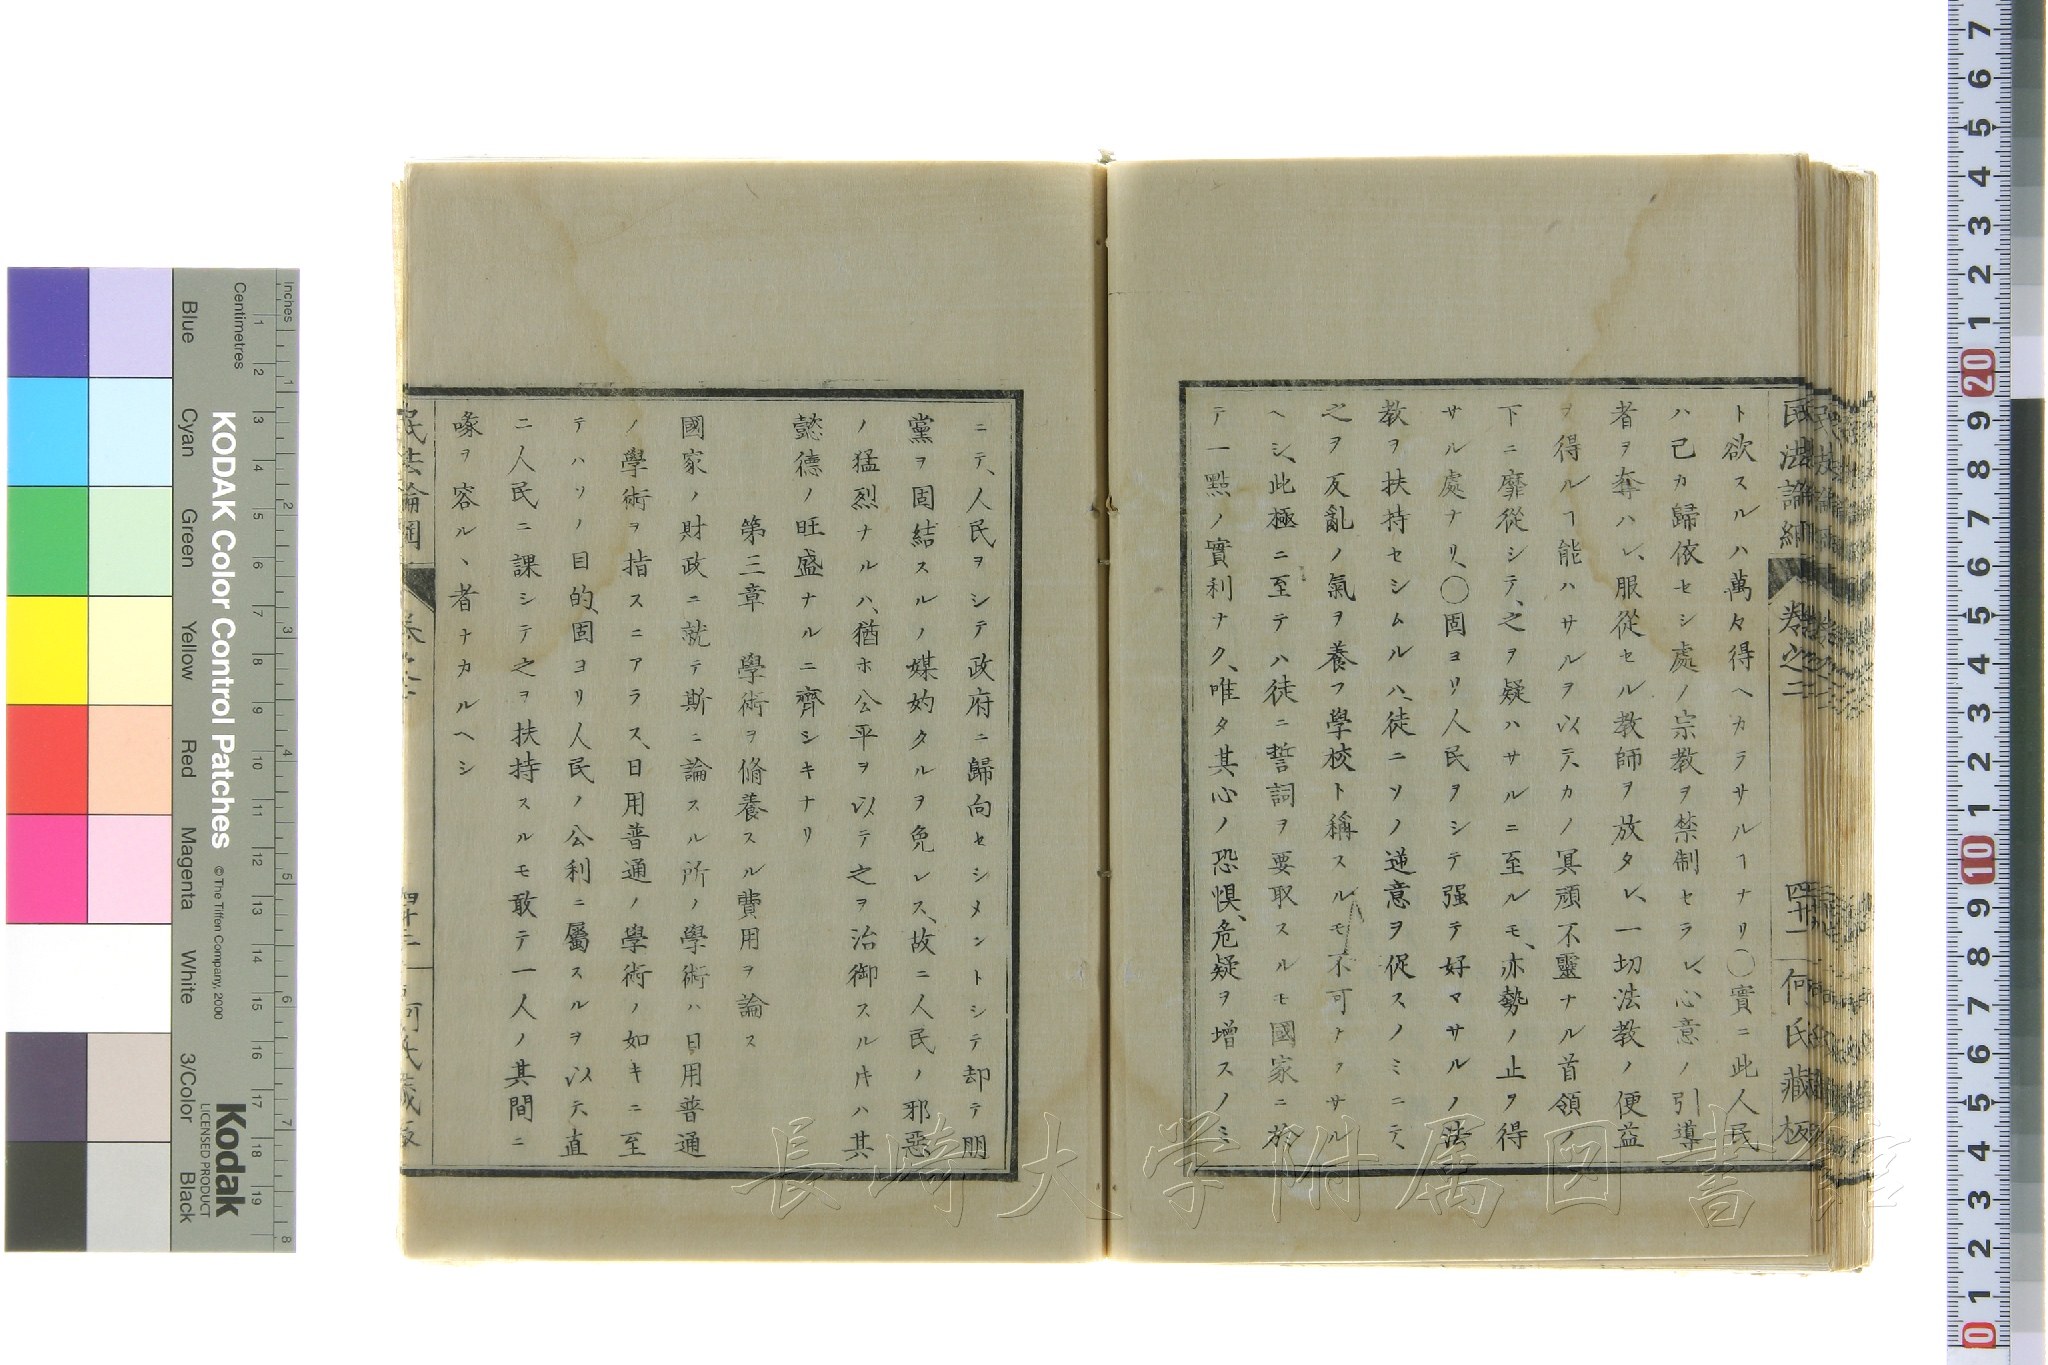 ト欲スルハ萬々得ヘカラサルヿナリ〇實ニ此人民
ハ己カ歸依セシ處ノ宗教ヲ禁制セラレ、心意ノ引導
者ヲ奪ハレ、服從セル教師ヲ放タレ、一切法教ノ便益
ヲ得ルヿ能ハサルヲ以テ、カノ冥頑不靈ナル首領ノ
下ニ靡從シテ、之ヲ疑ハサルニ至ルモ、亦勢ノ止ヲ得
サル處ナリ、〇固ヨリ人民ヲシテ强テ好マサルノ法
教ヲ扶持セシムルハ、徒ニソノ逆意ヲ促スノミニテ、
之ヲ反亂ノ氣ヲ養フ學校ト稱スルモ不可ナカサル
ヘシ、此極ニ至テハ徒ニ誓詞ヲ要取スルモ國家ニ於
テ一點ノ實利ナク、唯タ其心ノ恐惧、危疑ヲ增スノミ
民法論綱 卷之二 四十一 何氏藏板
ニテ、人民ヲシテ政府ニ歸向セシメントシテ却テ朋
黨ヲ固結スルノ媒妁タルヲ免レス、故ニ人民ノ邪惡
ノ猛烈ナルハ、猶ホ公平ヲ以テ之ヲ治御スルㇱハ其
懿德ノ旺盛ナルニ齊シキナリ
第三章 學術ヲ脩養スル費用ヲ論ス
國家ノ財政ニ就テ斯ニ論スル所ノ學術ハ日用普通
ノ學術ヲ指スニアラス、日用普通ノ學術ノ如キニ至
テハソノ目的、固ヨリ人民ノ公利ニ屬スルヲ以テ、直
ニ人民ニ課シテ之ヲ扶持スルモ敢テ一人ノ其間ニ
喙ヲ容ルヽ者ナカルヘシ
民法論綱
何氏藏板
長崎大学附属図書館
KODAK Color Control Patches
© The Tiffen Company, 2000
Kodak
LICENSED PRODUCT
Inches
Centimetres
Blue
Cyan
Green
Yellow
Red
Magenta
White
3/Color
Black